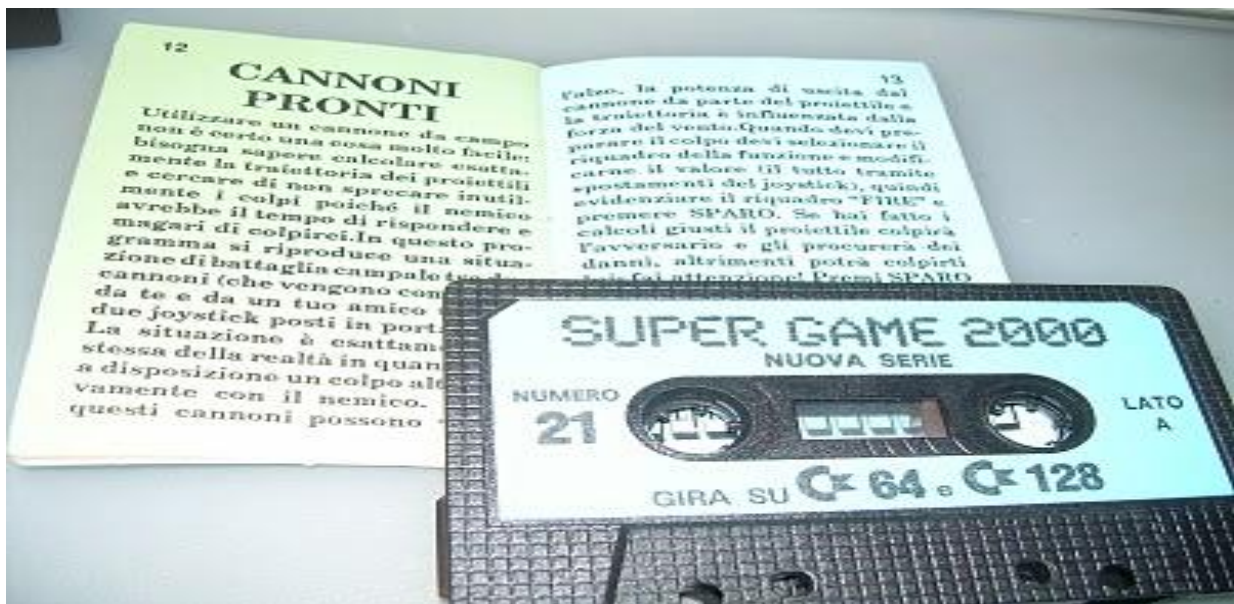 12
CANNONI
PRONTI
Utilizzare un cannone da campo
non è certo una cosa molto facile:
bisogna sapere calcolare esatta-
mente la traiettoria dei proiettili
e cercare di non sprecare inutil-
mente i colpi poiché il nemico
avrebbe il tempo di rispondere e
magari di colpirci.In questo pro-
gramma si riproduce una situa-
zione di battaglia campale tra
cannoni (che vengono
da te e da un tuo amico
due joystick posti in
La situazione è
stessa della realtà in
a disposizione un colpo
vamente con il nemico.
questi cannoni possono
13
l'alzo, la potenza di uscita dal
cannone da parte del proiettile e
la traiettoria è influenzata dalla
forza del vento.Quando devi pre-
parare il colpo devi selezionare il
riquadro della funzione e modifi-
carne il valore (il tutto tramite
spostamenti del joystick), quindi
evidenziare il riquadro "FIRE" e
premere SPARO. Se hai fatto i
calcoli giusti il proiettile colpirà
l'avversario e gli procurerà dei
danni, altrimenti potrà colpirti
fai attenzione! Premi SPARO
SUPER GAME 2000
NUOVA SERIE
NUMERO
21
LATO
A
GIRA SU C= 64 e C= 128